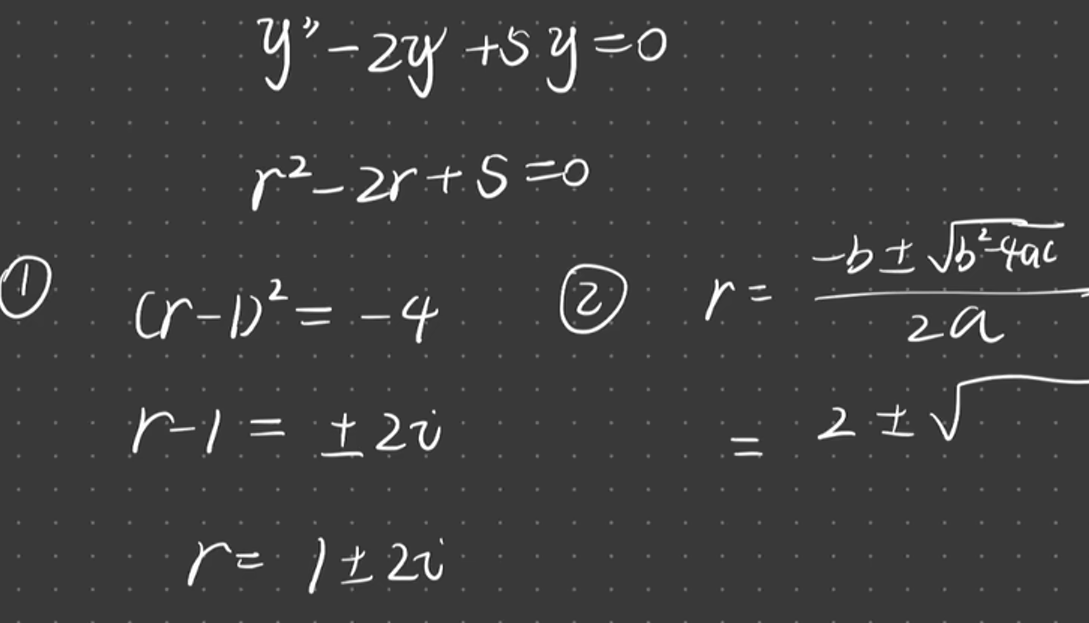 y'' - 2y' + 5y = 0
r² - 2r + 5 = 0
① (r-1)² = -4
r-1 = ±2i
r = 1 ± 2i
② r = (-b ± √(b²-4ac)) / 2a
= 2 ± √